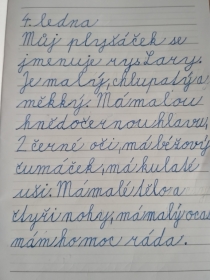 4. ledna
Můj plyšáček se
jmenuje rys Lary.
Je malý, chlupatý a
měkký. Má malou
hnědočernou hlavu,
2 černé oči, má béžový
čumáček, má kulaté
uši. Má malé tělo a
čtyři nohy, má malý ocas
mám ho moc ráda.